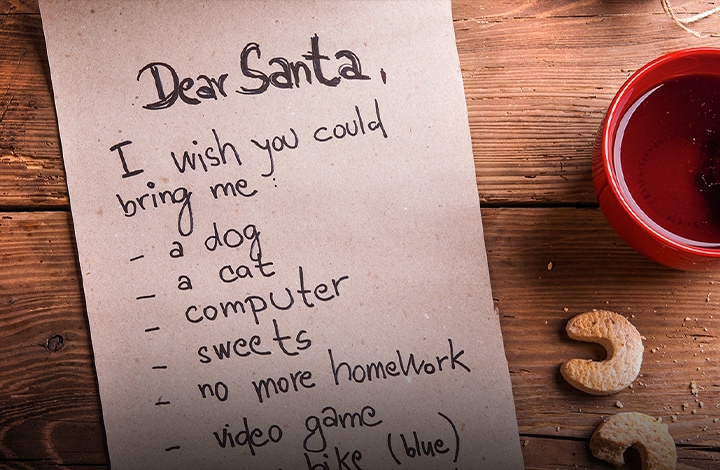 Dear Santa,
I wish you could
bring me:
- a dog
- a cat
- computer
- sweets
- no more homework
- video game
bike (blue)